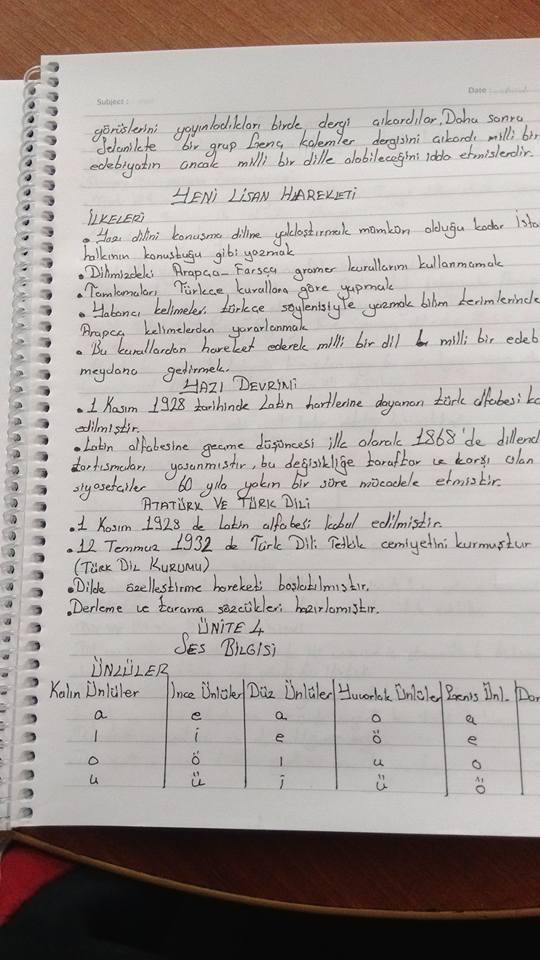 Subject :
Date :
görüşlerini yayınladıkları birde dergi çıkardılar. Daha sonra
Selanikte bir grup Genç kalemler dergisini çıkardı milli bir
edebiyatın ancak milli bir dille olabileceğini iddia etmişlerdir.
YENİ LİSAN HAREKETİ
İLKELERİ
• Yazı dilini konuşma diline yaklaştırmak mümkün olduğu kadar İsta
halkının konuştuğu gibi yazmak
• Dilimizdeki Arapça-Farsça gramer kurallarını kullanmamak
• Tamlamaları Türkçe kurallara göre yapmak
• Yabancı kelimeler türkçe söylenişiyle yazmak bilim terimlerinde
Arapça kelimelerden yararlanmak
• Bu kurallardan hareket ederek milli bir dil milli bir edeb
meydana getirmek.
YAZI DEVRİMİ
• 1 Kasım 1928 tarihinde Latin harflerine dayanan türk alfabesi ka
edilmiştir.
• Latin alfabesine geçme düşüncesi ilk olarak 1868'de dillend
tartışmaları yaşanmıştır, bu değişikliğe taraftar ve karşı olan
siyasetçiler 60 yıla yakın bir süre mücadele etmiştir.
ATATÜRK VE TÜRK DİLİ
• 1 Kasım 1928 de Latin alfabesi kabul edilmiştir.
• 12 Temmuz 1932 de Türk Dili Tetkik cemiyetini kurmuştur
(TÜRK DİL KURUMU)
• Dilde özelleştirme hareketi başlatılmıştır.
• Derleme ve tarama sözcükleri hazırlamıştır.
ÜNİTE 4
SES BİLGİSİ
ÜNLÜLER
Kalın Ünlüler İnce Ünlüler Düz Ünlüler Yuvarlak Ünlüler Geniş Ünl. Dar
a e a o a
ı i e ö e
o ö ı u o
u ü i ü ö